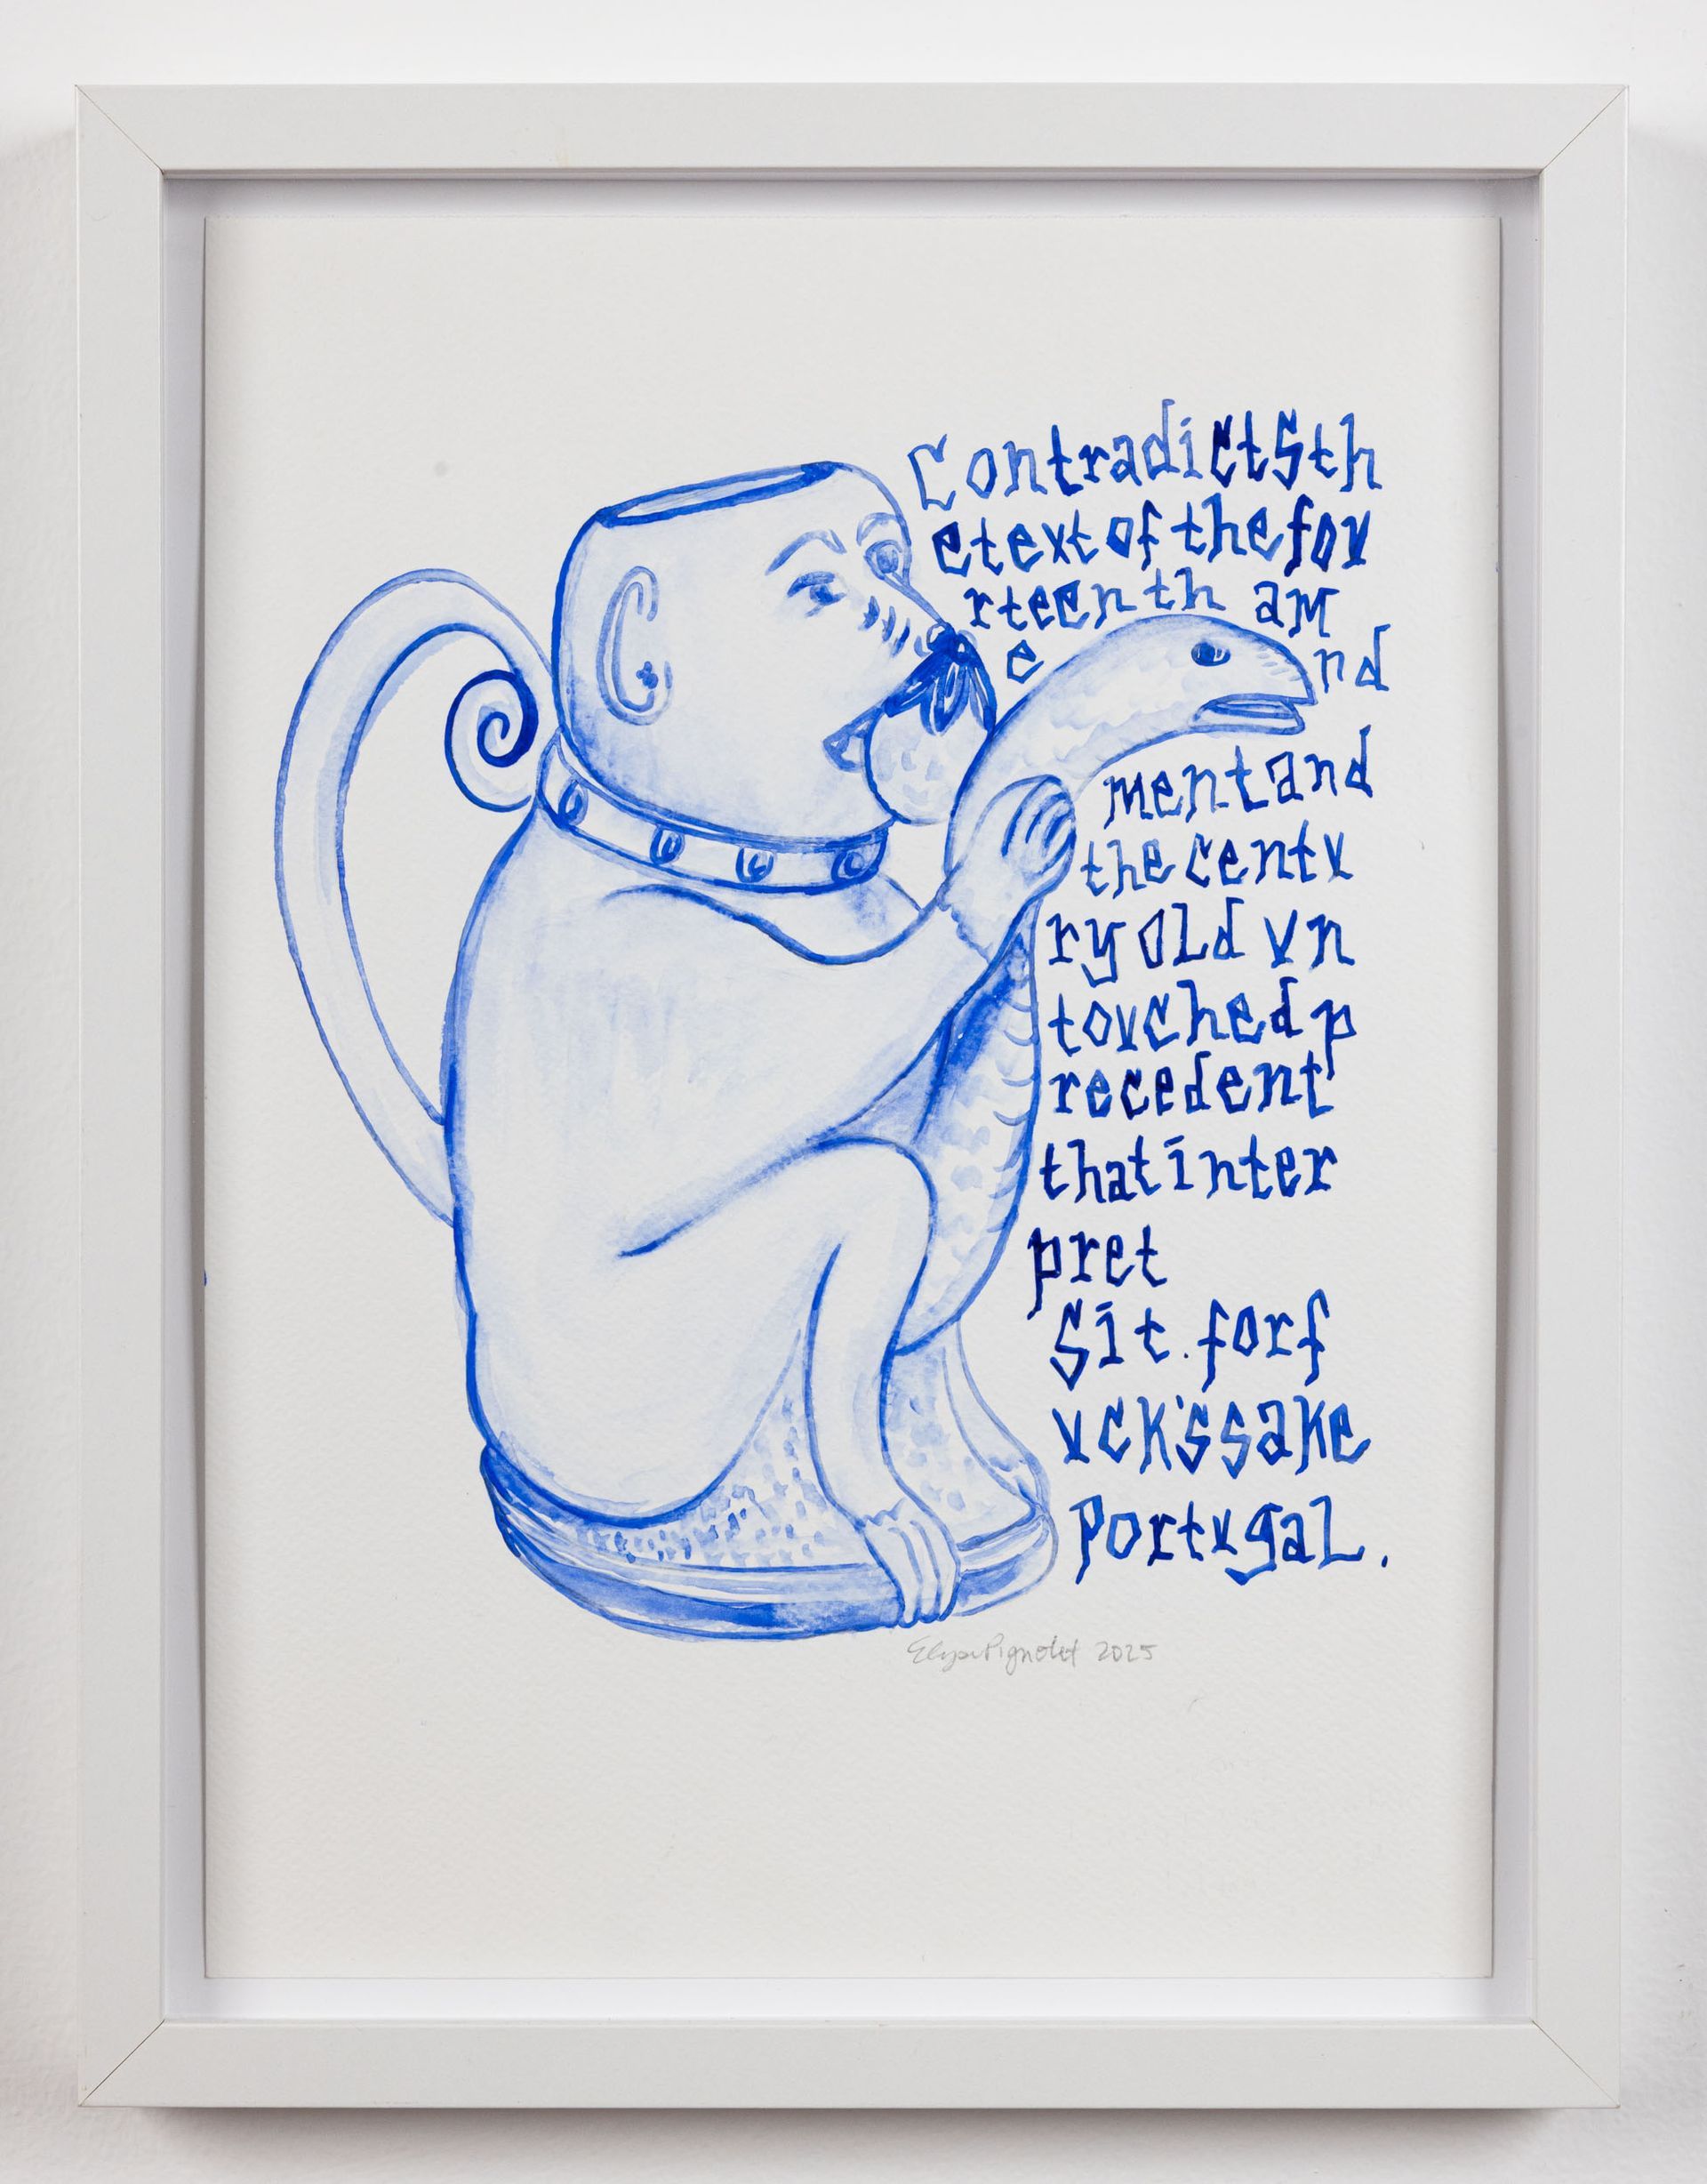 ContradictSth
etextofthefov
rteenth am
e nd
mentand
thecentv
ryoLd vn
tovchedp
recedent
thatinter
pret
Sit.forf
vck'ssake
PortvgaL.
Elyse Pignolet 2025